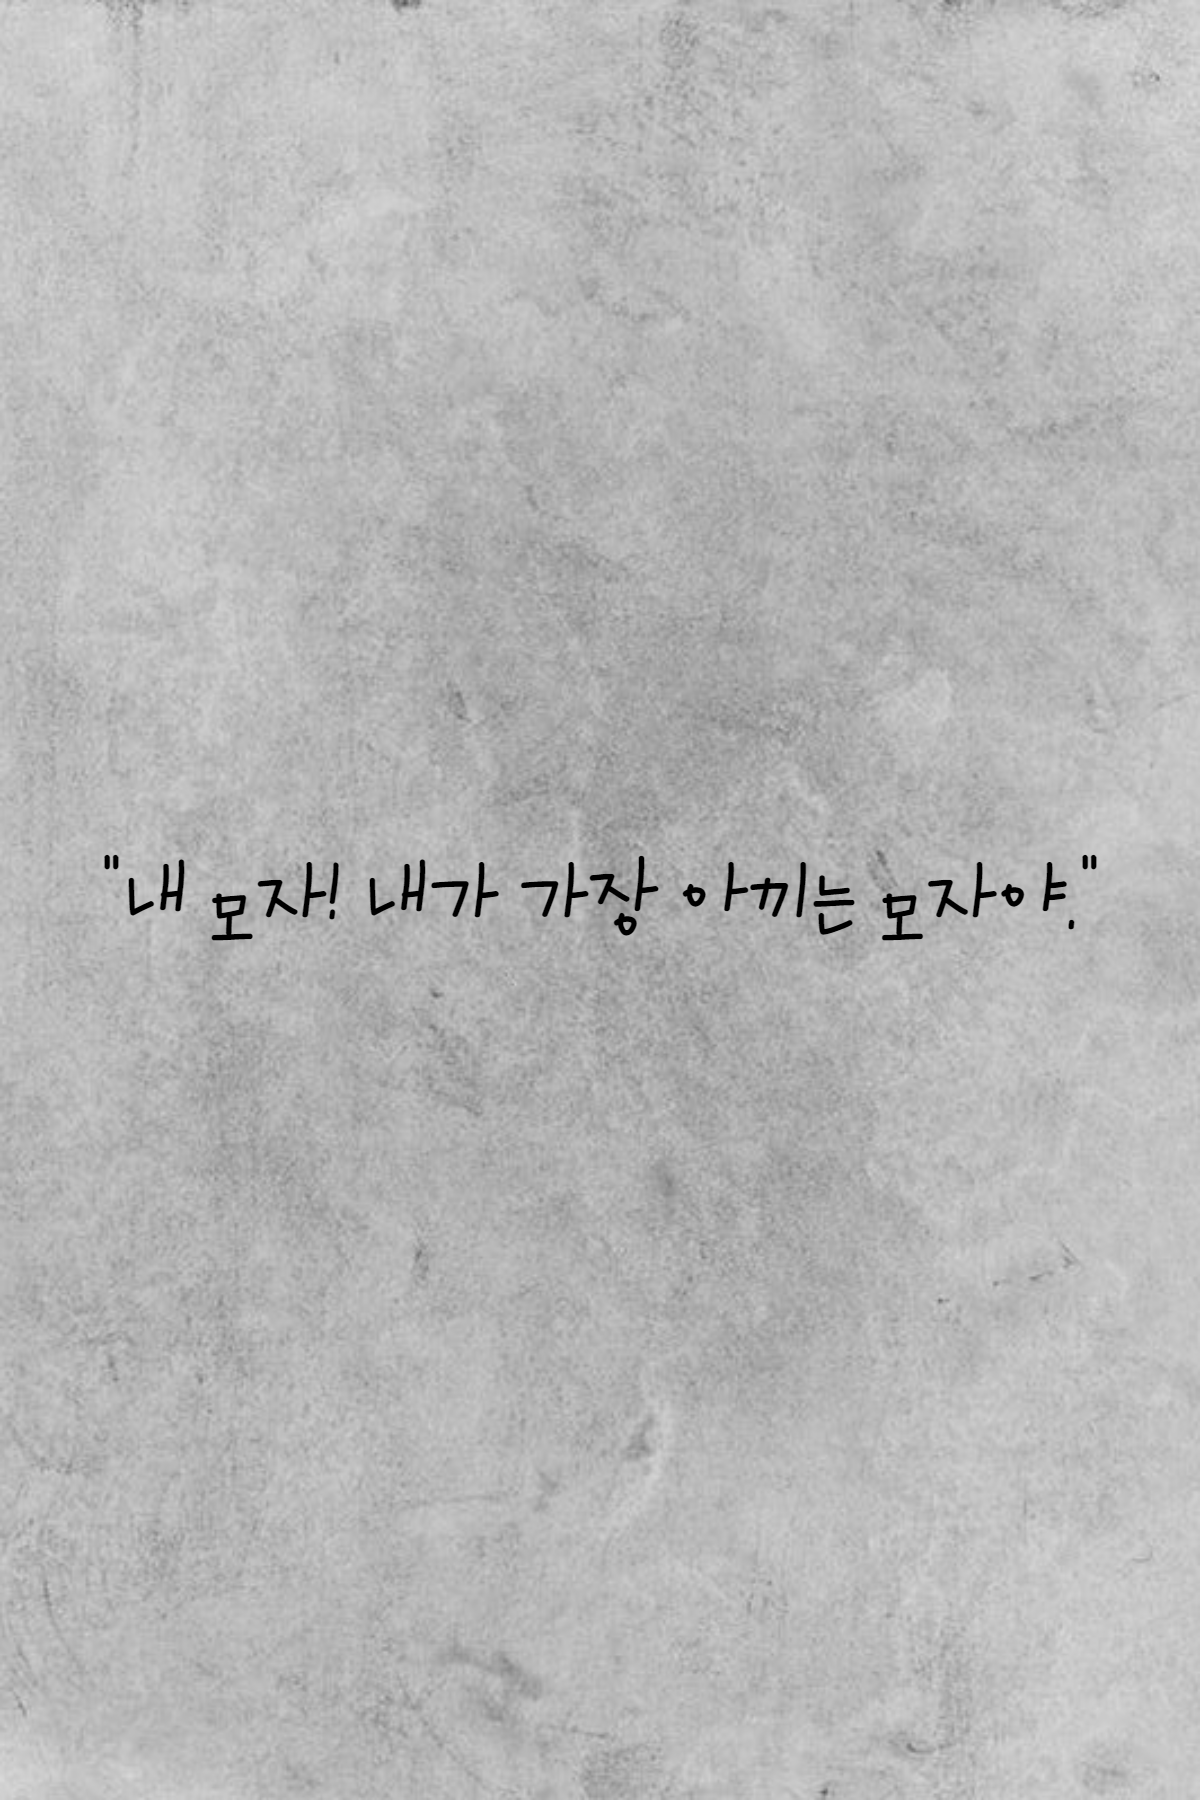 "내 모자! 내가 가장 아끼는 모자야."